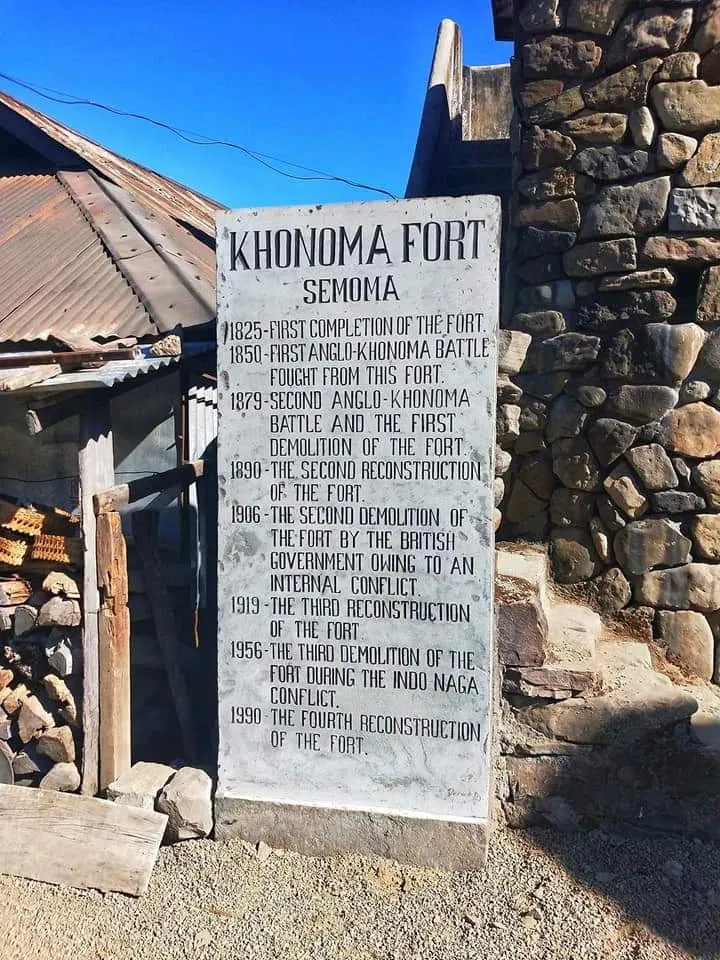 KHONOMA FORT
SEMOMA
1825-FIRST COMPLETION OF THE FORT.
1850-FIRST ANGLO-KHONOMA BATTLE
FOUGHT FROM THIS FORT.
1879-SECOND ANGLO-KHONOMA
BATTLE AND THE FIRST
DEMOLITION OF THE FORT.
1890-THE SECOND RECONSTRUCTION
OF THE FORT.
1906-THE SECOND DEMOLITION OF
THE FORT BY THE BRITISH
GOVERNMENT OWING TO AN
INTERNAL CONFLICT.
1919-THE THIRD RECONSTRUCTION
OF THE FORT
1956-THE THIRD DEMOLITION OF THE
FORT DURING THE INDO NAGA
CONFLICT.
1990-THE FOURTH RECONSTRUCTION
OF THE FORT.